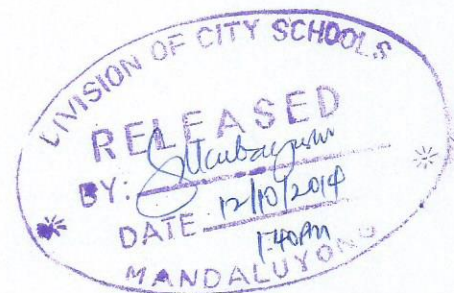 DIVISION OF CITY SCHOOLS
RELEASED
BY:
DATE 12/10/2014
1:40PM
MANDALUYONG